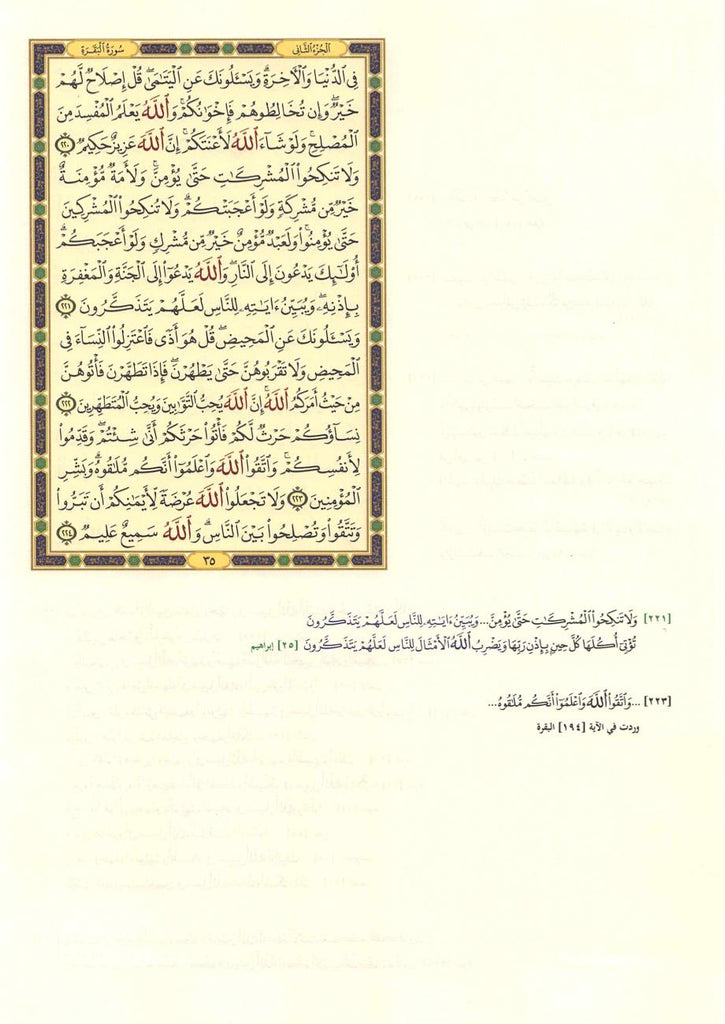 الجزء الثاني
سورة البقرة
فِي ٱلدُّنْيَا وَٱلْأَخِرَةِ ۗ وَيَسْـَٔلُونَكَ عَنِ ٱلْيَتَـٰمَىٰ ۖ قُلْ إِصْلَاحٌ لَّهُمْ
خَيْرٌ ۖ وَإِن تُخَالِطُوهُمْ فَإِخْوَٰنُكُمْ ۚ وَٱللَّهُ يَعْلَمُ ٱلْمُفْسِدَ مِنَ
ٱلْمُصْلِحِ ۚ وَلَوْ شَآءَ ٱللَّهُ لَأَعْنَتَكُمْ ۚ إِنَّ ٱللَّهَ عَزِيزٌ حَكِيمٌ ٢٢٠
وَلَا تَنكِحُوا۟ ٱلْمُشْرِكَـٰتِ حَتَّىٰ يُؤْمِنَّ ۚ وَلَأَمَةٌ مُّؤْمِنَةٌ
خَيْرٌ مِّن مُّشْرِكَةٍ وَلَوْ أَعْجَبَتْكُمْ ۗ وَلَا تُنكِحُوا۟ ٱلْمُشْرِكِينَ
حَتَّىٰ يُؤْمِنُوا۟ ۚ وَلَعَبْدٌ مُّؤْمِنٌ خَيْرٌ مِّن مُّشْرِكٍ وَلَوْ أَعْجَبَكُمْ ۗ
أُو۟لَـٰٓئِكَ يَدْعُونَ إِلَى ٱلنَّارِ ۖ وَٱللَّهُ يَدْعُوٓا۟ إِلَى ٱلْجَنَّةِ وَٱلْمَغْفِرَةِ
بِإِذْنِهِۦ ۖ وَيُبَيِّنُ ءَايَـٰتِهِۦ لِلنَّاسِ لَعَلَّهُمْ يَتَذَكَّرُونَ ٢٢١
وَيَسْـَٔلُونَكَ عَنِ ٱلْمَحِيضِ ۖ قُلْ هُوَ أَذًى فَٱعْتَزِلُوا۟ ٱلنِّسَآءَ فِي
ٱلْمَحِيضِ وَلَا تَقْرَبُوهُنَّ حَتَّىٰ يَطْهُرْنَ ۖ فَإِذَا تَطَهَّرْنَ فَأْتُوهُنَّ
مِنْ حَيْثُ أَمَرَكُمُ ٱللَّهُ ۚ إِنَّ ٱللَّهَ يُحِبُّ ٱلتَّوَّٰبِينَ وَيُحِبُّ ٱلْمُتَطَهِّرِينَ ٢٢٢
نِسَآؤُكُمْ حَرْثٌ لَّكُمْ فَأْتُوا۟ حَرْثَكُمْ أَنَّىٰ شِئْتُمْ ۖ وَقَدِّمُوا۟
لِأَنفُسِكُمْ ۚ وَٱتَّقُوا۟ ٱللَّهَ وَٱعْلَمُوٓا۟ أَنَّكُم مُّلَـٰقُوهُ ۗ وَبَشِّرِ
ٱلْمُؤْمِنِينَ ٢٢٣ وَلَا تَجْعَلُوا۟ ٱللَّهَ عُرْضَةً لِّأَيْمَـٰنِكُمْ أَن تَبَرُّوا۟
وَتَتَّقُوا۟ وَتُصْلِحُوا۟ بَيْنَ ٱلنَّاسِ ۗ وَٱللَّهُ سَمِيعٌ عَلِيمٌ ٢٢٤
٣٥
[٢٢١] وَلَا تَنكِحُوا۟ ٱلْمُشْرِكَـٰتِ حَتَّىٰ يُؤْمِنَّ ... وَيُبَيِّنُ ءَايَـٰتِهِۦ لِلنَّاسِ لَعَلَّهُمْ يَتَذَكَّرُونَ
تُؤْتِىٓ أُكُلَهَا كُلَّ حِينٍ بِإِذْنِ رَبِّهَا ۗ وَيَضْرِبُ ٱللَّهُ ٱلْأَمْثَالَ لِلنَّاسِ لَعَلَّهُمْ يَتَذَكَّرُونَ [٢٥] إبراهيم
[٢٢٣] ... وَٱتَّقُوا۟ ٱللَّهَ وَٱعْلَمُوٓا۟ أَنَّكُم مُّلَـٰقُوهُ ...
وردت في الآية [١٩٤] البقرة